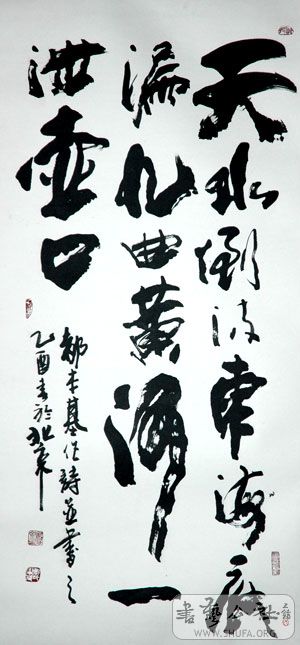 天水倒波東海底
漏九曲黄河一
泄壶口
都本基作詩並書之
乙酉春於北京
書藝公社
WWW.SHUFA.ORG